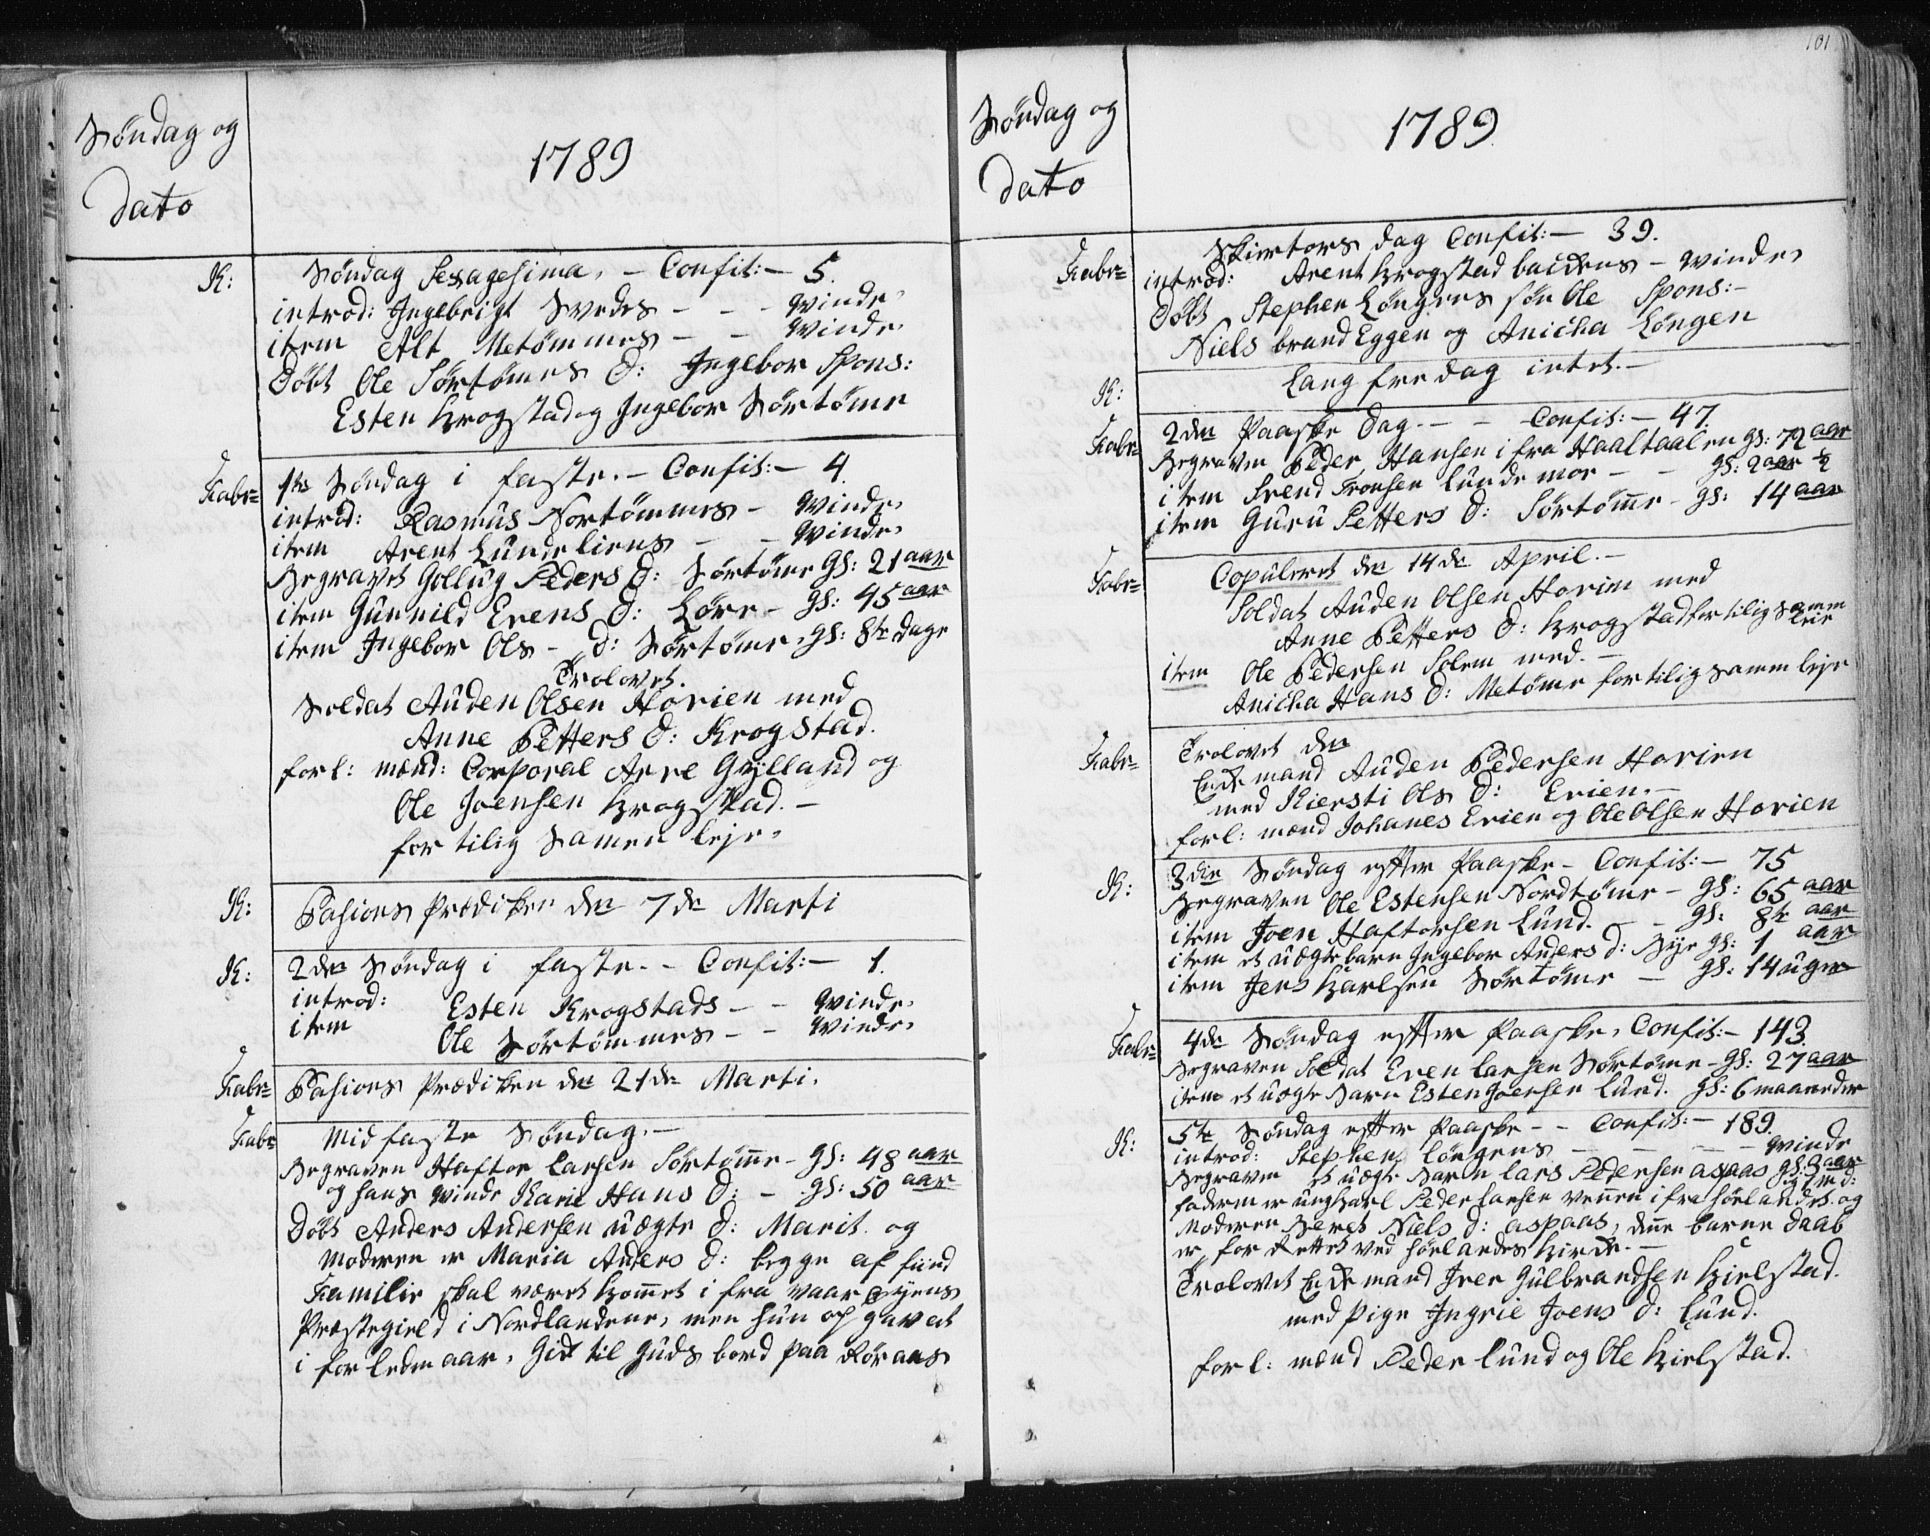 Søndag og
dato
1789
K: Søndag Sexagesima. – Confit: – 5.
introd: Ingebrigt Svedes – – – Qvinde
item Alt Metømmes – – Qvinde
Døbt Ole Sørtømes D: Ingebor Spons:
Esten Krogstad og Ingebor Sørtøme
1te Søndag i faste. – Confit: – 4.
introd: Rasmus Nortømmes – Qvinde
item Arent Lundeliens – – Qvinde
Begravet Gollug Peders D: Sørtøme gl: 21 aar
item Gunnild Evens D: Løre – gl: 45 aar
item Ingebor Ols – D: Sørtøme, gl: 8te dage
Trolovet.
Soldat Auden Olsen Horien med
Anne Petters D: Krogstad.
forl: mænd: Corporal Arre Gylland og
Ole Joensen Krogstad. –
for tilig Samen leje.
K: Pasions Prædiken den 7de Marti
K: 2den Søndag i faste. – Confit: – 1.
introd: Esten Krogstads – – Qvinde
item Ole Sørtømmes – – Qvinde
Pasions Prædiken den 21de Marti.
Mid faste Søndag. –
Begraven Haftor Larsen Sørtøme – gl: 48 aar
og hans Qvinde Karie Hans D: – gl: 50 aar
Døbt Anders Andersen uægte D: Marit. og
Moderen er Maria Anders D: begge af
Familie skal været kommet i fra
Præstegield i Nordlandene, men hun
i forleden aar, Gik til Guds bord paa Røraas
101
Søndag og
dato
1789
Skiertors dag Confit: – 39.
introd: Arent Krogstad bakkens – Qvinde
Døbt Stephen Løngens søn Ole Spons: –
Niels brand Eggen og Anicka Løngen
K: Lang fredag intet. –
2den Paaske Dag. – – Confit: – 47.
Begraven Peder Hansen i fra Haaltaalen gl: 72 aar
item Svend Tronsen Lundemor – – gl: 2 aar ½
item Guru Petters D: Sørtøme – gl: 14 aar
Copuleret den 14de April. –
Soldat Auden Olsen Horien med
Anne Petters D: Krogstad for tilig Samm
leje
item Ole Pedersen Solem med. –
Anicka Hans D: Metøme for tilig Samm leje
Trolovet den
Enke mand Auden Pedersen Horien
med Kiersti Ols D: Evien. –
forl: mænd Johanes Evien og Ole Olsen Horien
K: 3die Søndag efter Paaske – Confit: – 75
Begraven Ole Estensen Nordtøme – gl: 65 aar
item Joen Haftorsen Lund. – – gl: 8te aar
item et uægte barn Ingebor Anders D: Bye gl: 1 aar
item Jens Karlsen Sørtøme – gl: 14 uger
4de Søndag efter Paaske, Confit: – 143.
Begraven Soldat Even Larsen Sørtøme – gl: 27 aar
item et uægte Barn Esten Joensen Lund. gl: 6 maaneder
K: 5te Søndag efter Paaske – – Confit: – 189.
introd: Stephen Løngens – – – – Qvinde
Begraven et uægte Barn Lars Pedersen Aspaas gl: 3 aar
faderen er ungkarl Peder Larsen i fra Hørlandet. og
Moderen Beret Niels D: Aspaas, dene barne daab
er for Rettet ved Hørlandes Kirke. –
Trolovet Enke mand Iver Gulbrandsen Kielstad.
med pige Ingrie Joens D: Lund.
forl: mænd Peder Lund og Ole Kielstad.